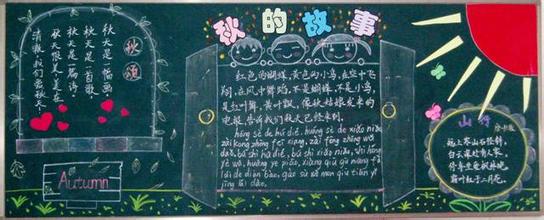 秋的故事
秋颂
秋天是一幅画，
秋天是一首歌，
秋天是一篇诗。
秋天很美，美在
清澈，我们爱秋天！
Autumn
红色的蝴蝶，黄色的小鸟，在空中飞
翔，在风中舞蹈，不是蝴蝶，不是小鸟，
是红叶舞，黄叶飘，像秋姑娘发来的
电报，告诉我们秋天已经来到。
hóng sè de hú dié, huáng sè de xiǎo niǎo
zài kōng zhōng fēi xiáng, zài fēng zhōng wǔ
dǎo, bú shì hú dié, bú shì xiǎo niǎo, shì hóng
yè wǔ, huáng yè piāo, xiàng qiū gū niáng fā
lái de diàn bào, gào sù wǒ men qiū tiān yǐ
jīng lái dào.
山行
远上寒山石径斜，
白云深处有人家。
停车坐爱枫林晚，
霜叶红于二月花。